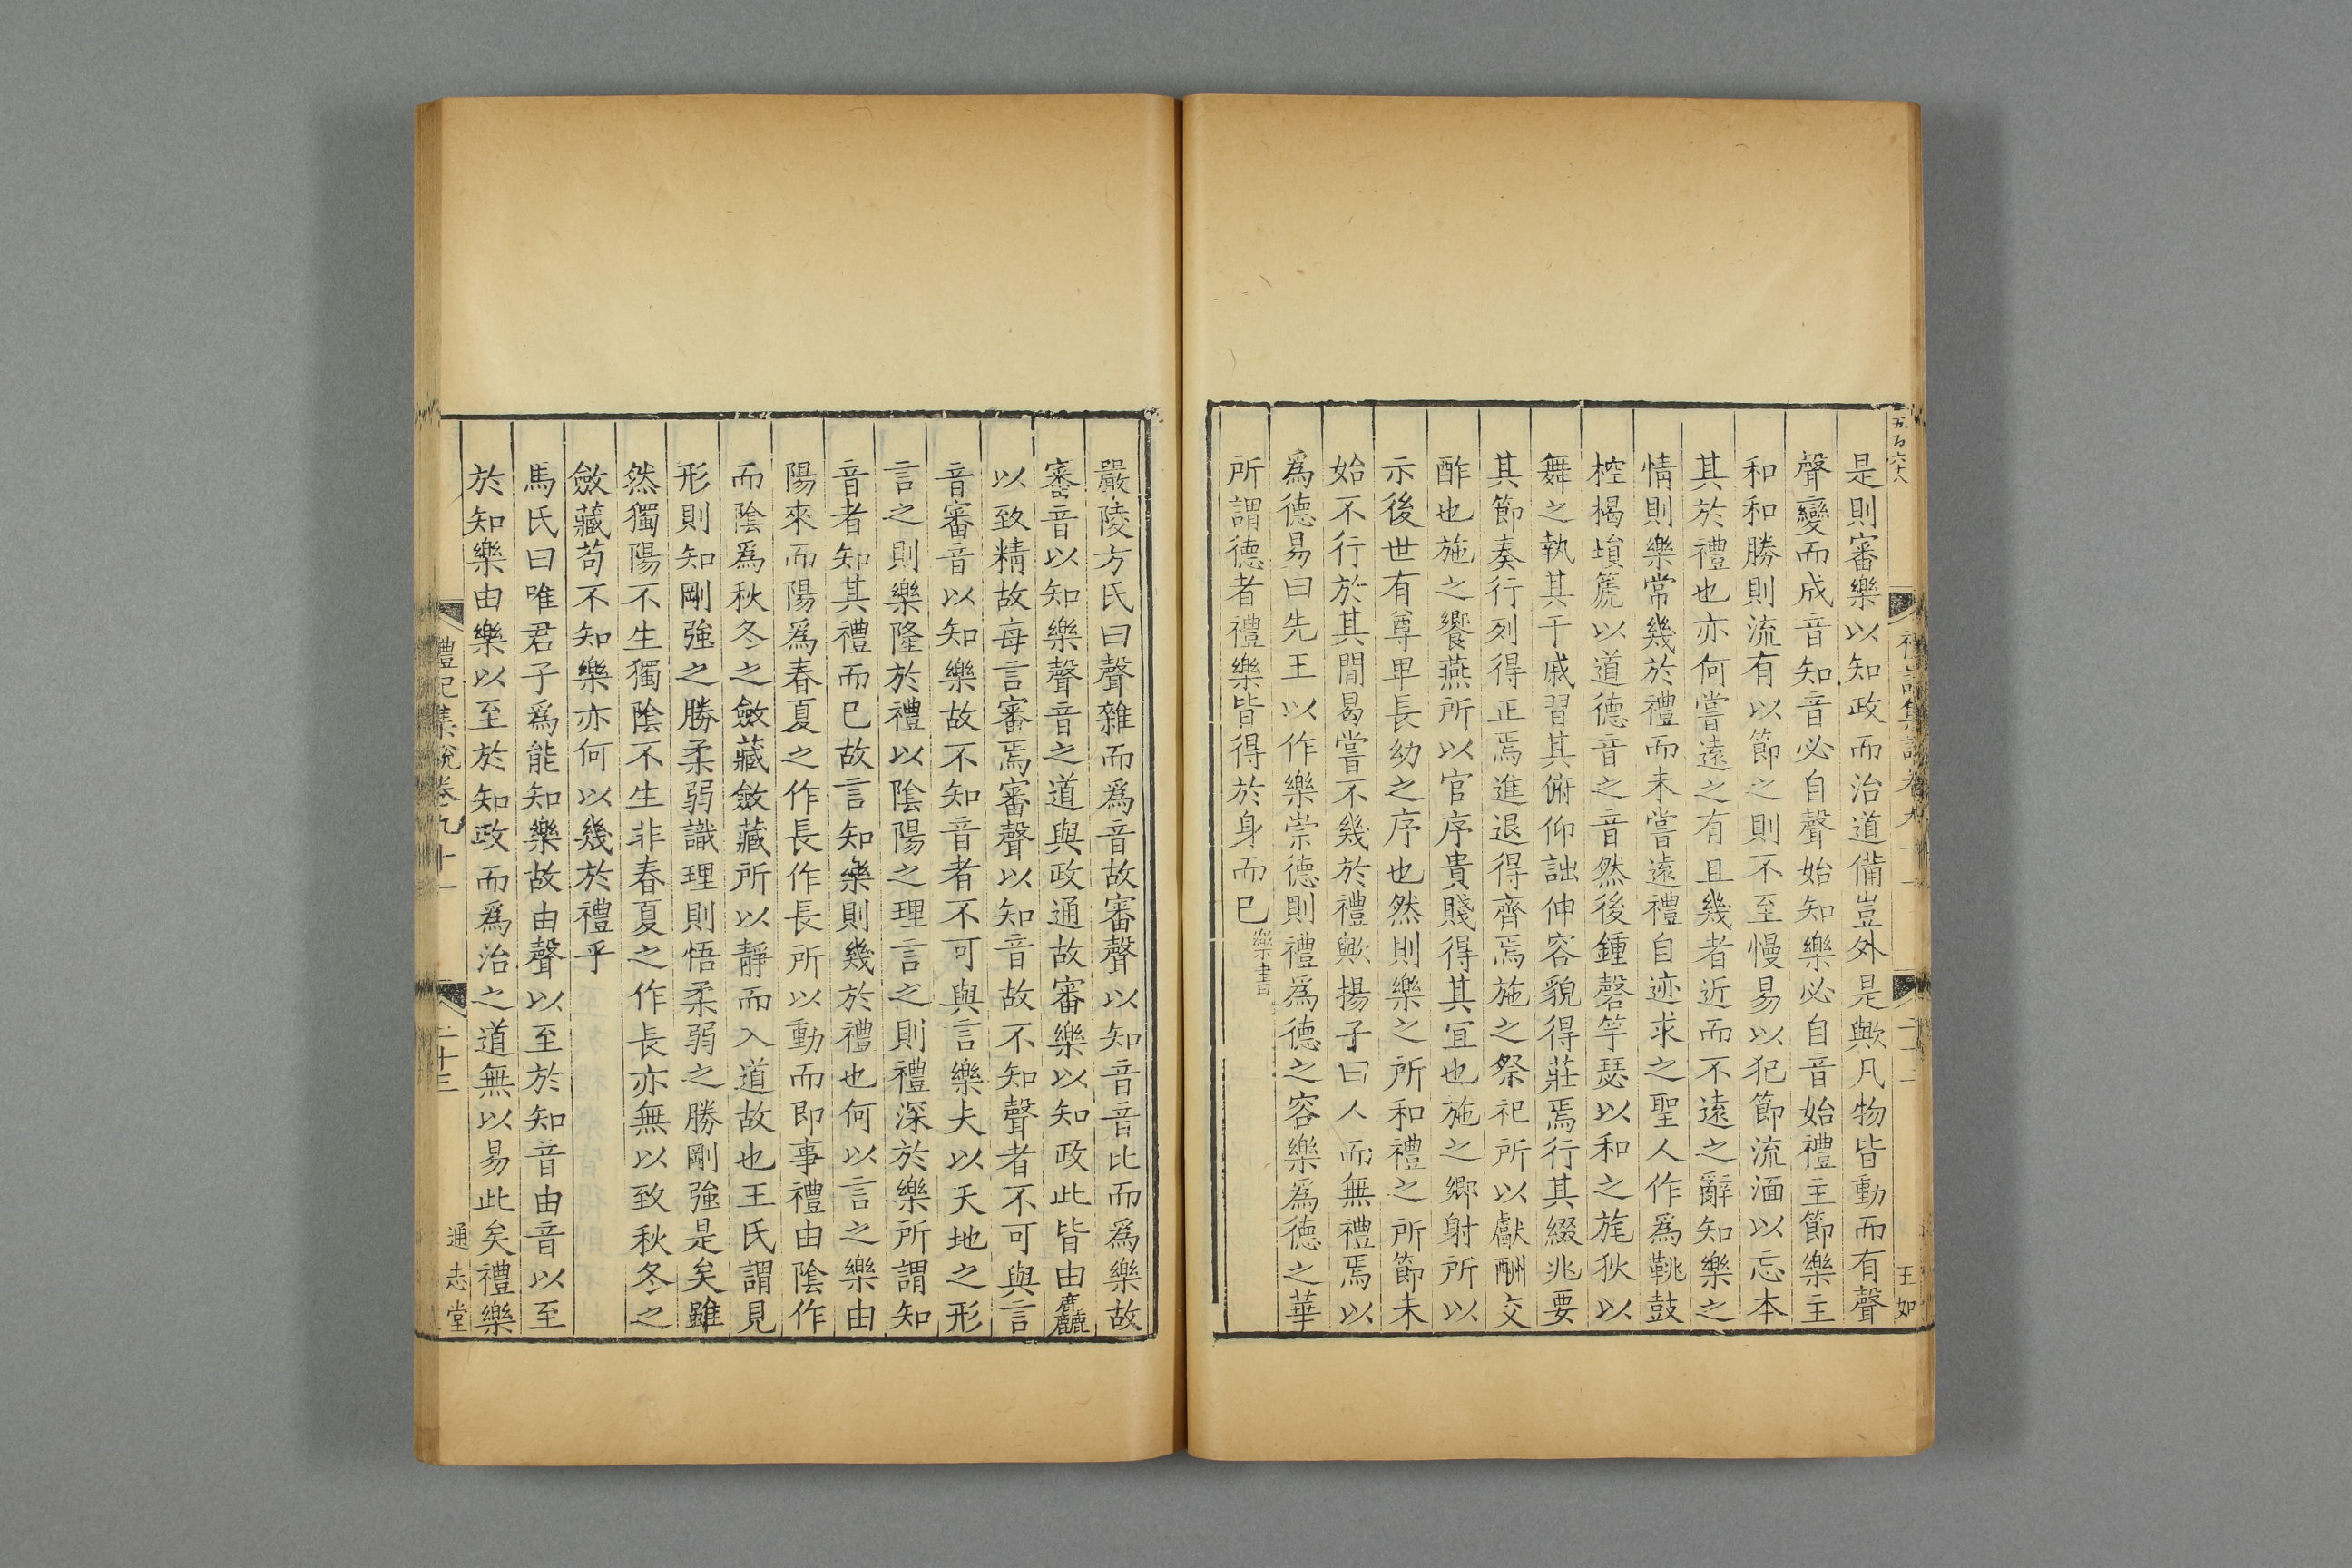 五百六十八
是則審樂以知政而治道備豈外是歟凡物皆動而有聲
聲變而成音知音必自聲始知樂必自音始禮主節樂主
和和勝則流有以節之則不至慢易以犯節流湎以忘本
其於禮也亦何嘗遠之有且幾者近而不遠之辭知樂之
情則樂常幾於禮而未嘗遠禮自迹求之聖人作為鞉鼓
椌楬塤篪以道德音之音然後鍾磬竽瑟以和之旄狄以
舞之執其干戚習其俯仰詘伸容貌得莊焉行其綴兆要
其節奏行列得正焉進退得齊焉施之祭祀所以獻酬交
酢也施之饗燕所以官序貴賤得其宜也施之鄉射所以
示後世有尊卑長幼之序也然則樂之所和禮之所節未
始不行於其間曷嘗不幾於禮歟揚子曰人而無禮焉以
為德易曰先王以作樂崇德則禮為德之容樂為德之華
所謂德者禮樂皆得於身而已樂書
王如
嚴陵方氏曰聲雜而為音故審聲以知音音比而為樂故
審音以知樂聲音之道與政通故審樂以知政此皆由麤
以致精故每言審焉審聲以知音故不知聲者不可與言
音審音以知樂故不知音者不可與言樂夫以天地之形
言之則樂隆於禮以陰陽之理言之則禮深於樂所謂知
音者知其禮而已故言知樂則幾於禮也何以言之樂由
陽來而陽為春夏之作長作長所以動而即事禮由陰作
而陰為秋冬之斂藏斂藏所以靜而入道故也王氏謂見
形則知剛強之勝柔弱識理則悟柔弱之勝剛強是矣雖
然獨陽不生獨陰不生非春夏之作長亦無以致秋冬之
斂藏苟不知樂亦何以幾於禮乎
馬氏曰唯君子為能知樂故由聲以至於知音由音以至
於知樂由樂以至於知政而為治之道無以易此矣禮樂
禮記集說卷九十一
二十三
通志堂